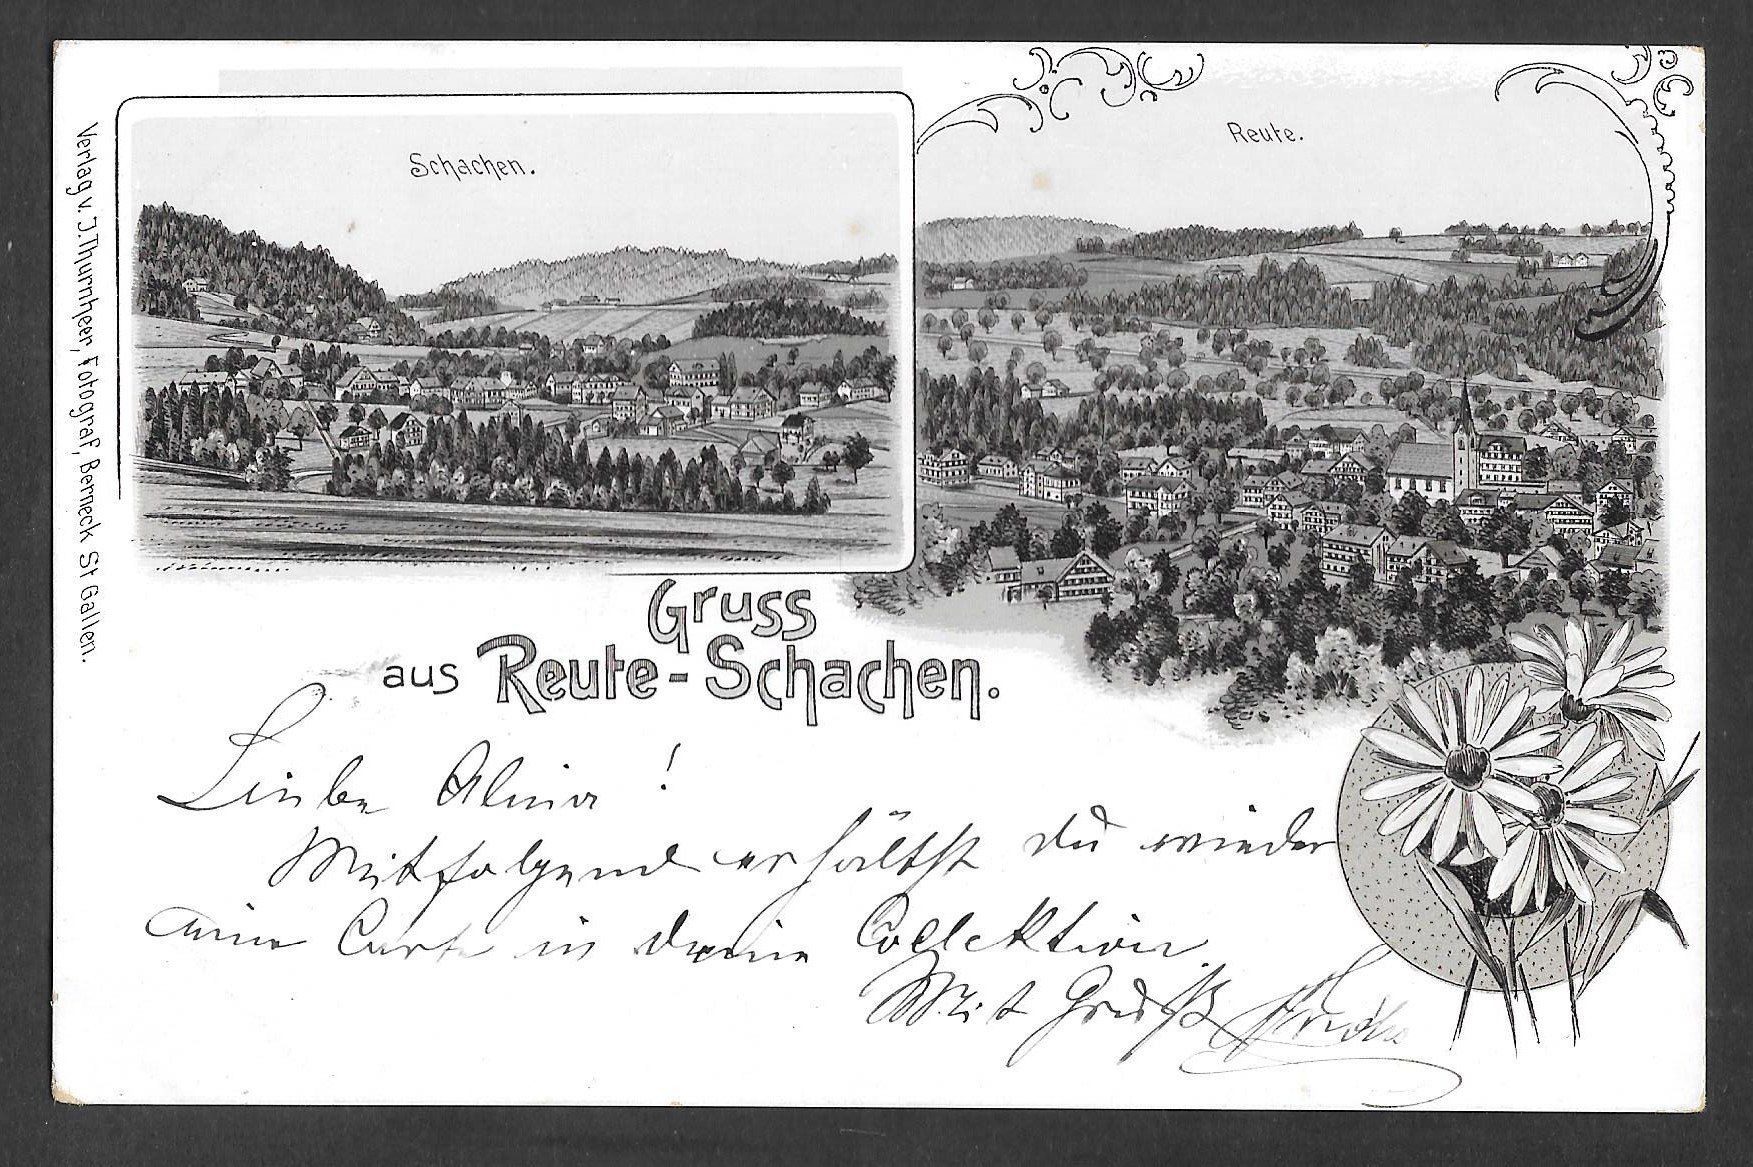 Schachen.
Reute.
Verlag v. J. Thurnheer, Fotograf, Berneck St Gallen.
Gruss
aus Reute-Schachen.
Liebe Alina!
Mitfolgend erhältst du wieder
eine Carte in deine Collektion.
Mit Gruß